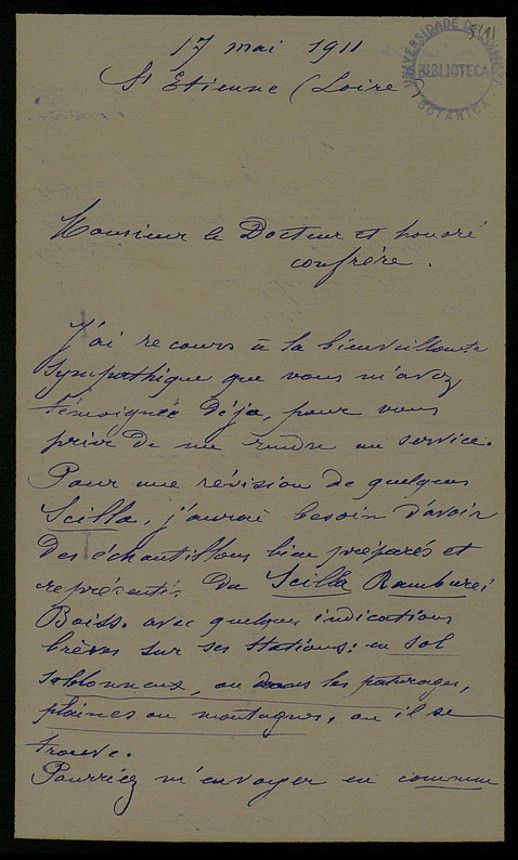 17 mai 1911
St Etienne (Loire)
UNIVERSIDADE DE
BIBLIOTECA
BOTANICA
Monsieur le Docteur et honoré
confrère.
J'ai recours à la bienveillante
sympathique que vous m'avez
témoignée déja, pour vous
prier de me rendre un service.
Pour une révision de quelques
Scilla, j'aurai besoin d'avoir
des échantillons bien préparés et
représentés du Scilla Ramburei
Boiss. avec quelques indications
brèves sur ses stations: en sol
sablonneux, ou dans les paturages,
plaines ou montagnes, où il se
trouve.
Pourriez m'envoyer en commun